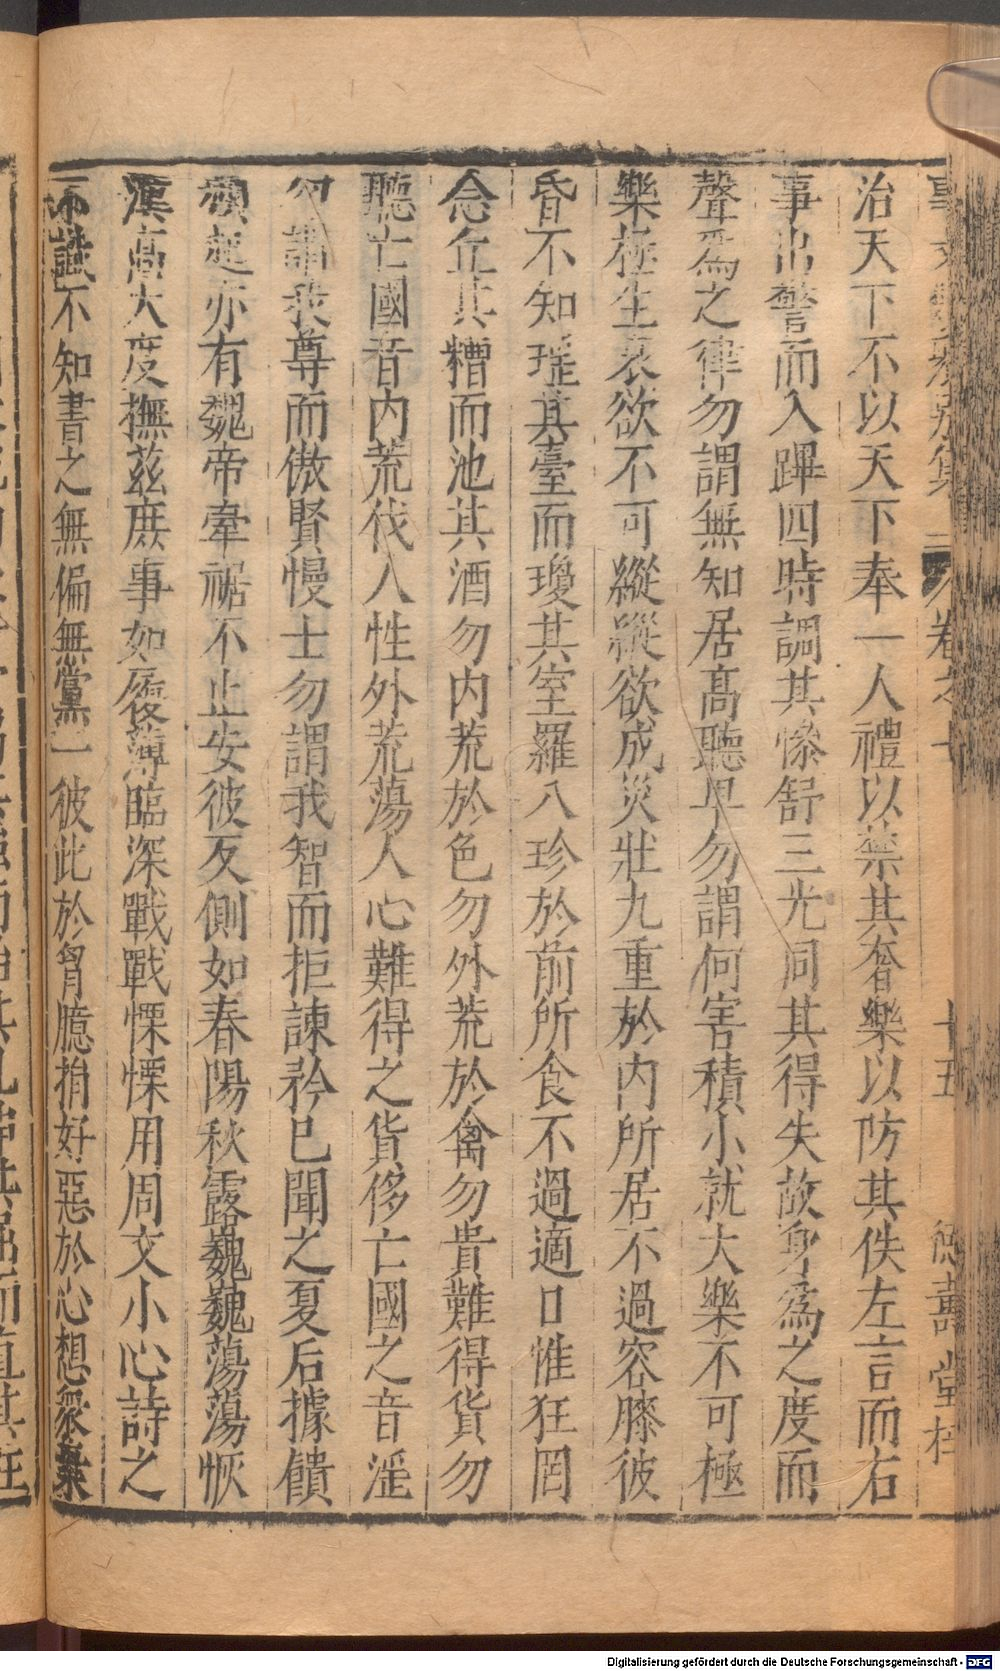 治天下不以天下奉一人禮以禁其奢樂以防其佚左言而右
事出警而入蹕四時調其慘舒三光同其得失故身為之度而
聲為之律勿謂無知居高聽卑勿謂何害積小就大樂不可極
樂極生哀欲不可縱縱欲成災壯九重於內所居不過容膝彼
昏不知瑤其臺而瓊其室羅八珍於前所食不過適口惟狂罔
念丘其糟而池其酒勿內荒於色勿外荒於禽勿貴難得貨勿
聽亡國音內荒伐人性外荒蕩人心難得之貨侈亡國之音淫
勿謂我尊而傲賢慢士勿謂我智而拒諫矜已聞之夏后據饋
頻起亦有魏帝牽裾不止安彼反側如春陽秋露巍巍蕩蕩恢
漢高大度撫茲庶事如履薄臨深戰戰慄慄用周文小心詩之
不識不知書之無偏無黨一彼此於胷臆捐好惡於心想衆棄
卷之十
十五
德壽堂梓
Digitalisierung gefördert durch die Deutsche Forschungsgemeinschaft - DFG